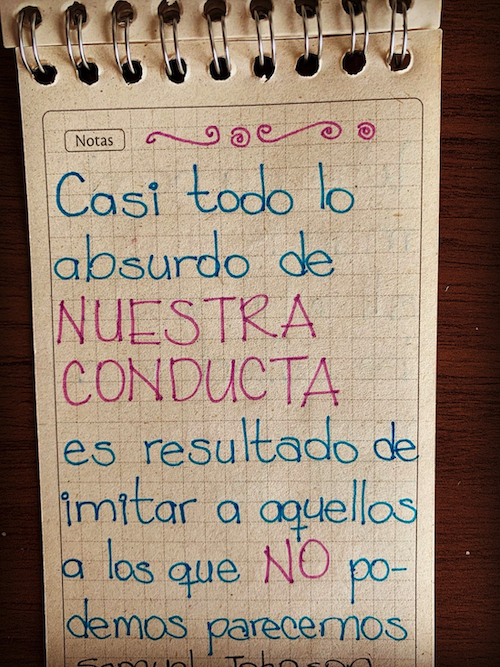 Notas
Casi todo lo
absurdo de
NUESTRA
CONDUCTA
es resultado de
imitar a aquellos
a los que NO po-
demos parecernos
Samuel Johnson